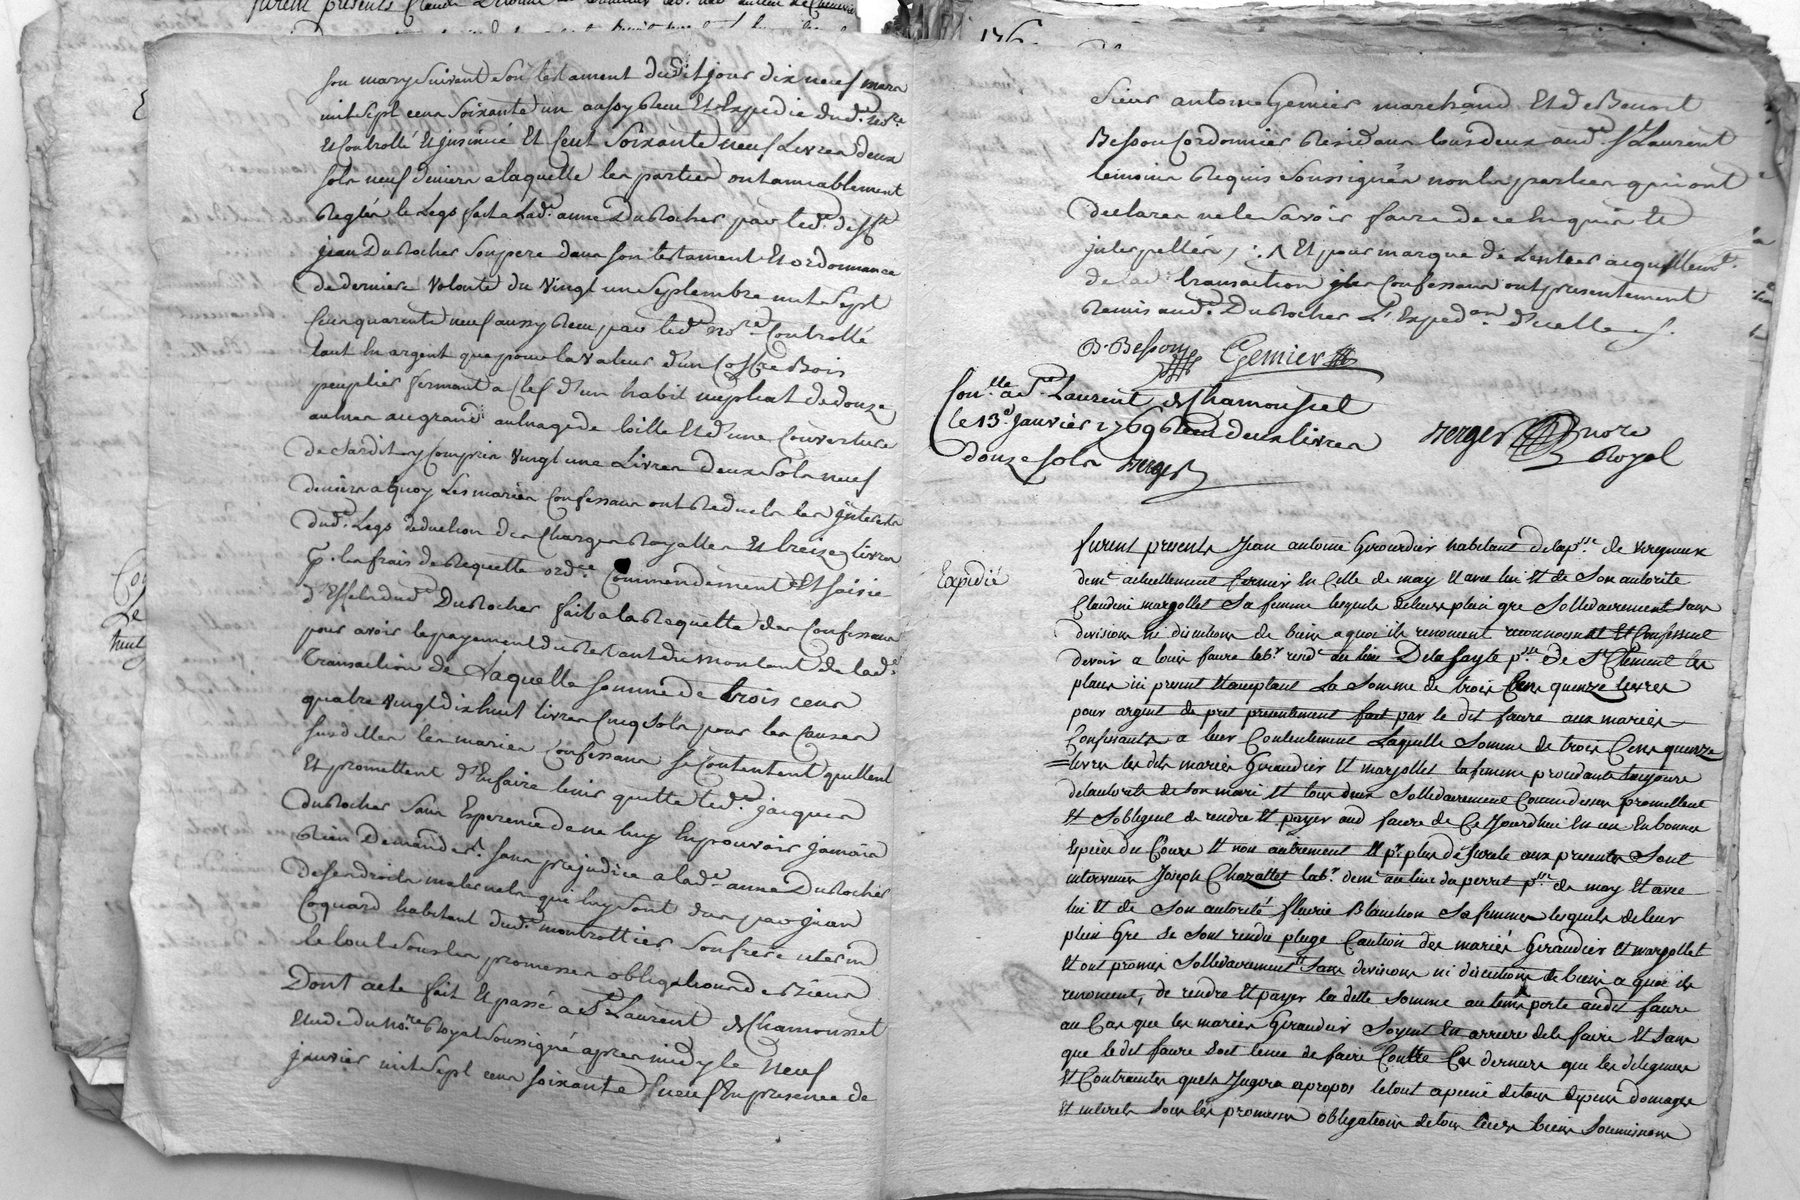 furent presents Claude
son mary suivant son testament dudit jour dix neuf mars
mil sept cens soixante un aussy receu et expedié dud. no.re
et controllé et jnsinué et cent soixante neuf livres deux
sols neuf deniers a laquelle les parties ont amiablement
reglés le legs fait a lad.e anne Durocher par led. deff.t
jean Durocher son pere dans son testament et ordonnance
de derniere volonté du vingt un septembre mil sept
cens quarente neuf aussy receu par led. no.re controllé
tant en argent que pour la valeur d'un coffre bois
peuplier fermant a clef d'un habit nuptial de douze
aulnes au grand aulnage de toille et d'une couverture
de Cardit y compris vingt une livres deux sols neuf
deniers a quoy les mariés confessans ont reduets les jnterets
dud. legs deduction des charges royalles et treize livres
p.r les frais de requette ord.ce commendement et saisie
d'effets dud. Durocher fait a la requette des confessans
pour avoir le payement du restant du montant de lad.e
transaction de laquelle somme de trois cens
quatre vingt dix huit livres cinq sols pour les causes
susdittes les mariés confessans se contentent quittent
et promettent d'en faire tenir quitte led. jacques
Durocher sans esperence de ne luy en pouvoir jamais
rien demander, sans prejudice a lad.e anne Durocher
de ses droits maternels que luy sont dus par jean
Coquard habitant dud. montrottier son frere uterin
le tout sous les promesses obligations de biens
Dont acte fait et passé a St. Laurent de Chamousset
etude du no.re royal soussigné apres midy le neuf
janvier mil sept cens soixante neuf en presence de
176
sieur antoine Gemier marchand et de Benoit
Besson cordonnier residans tous deux aud. St. Laurent
temoins requis soussignés non les parties qui ont
declarés ne le savoir faire de ce enquis et
jnterpellés, : Et pour marque de l'entier acquittem.t
de lad. transaction les confessans ont presentement
remis aud. Durocher l'Exped.on d'icelle
B. Besson Gemier
Con.lle a St. Laurent de Chamousset
le 13.e Janvier 1769 receu deux livres
douze sols Berger
Berger no.re
Royal
Expedié
furent presents Jean antoine Girourdier habitant de la p.sse de virigneux
dem.t actuellement fermier en celle de may et avec lui et de son autorité
Claudine margollet sa femme lesquels de leurs plein gre sollidairement sans
division ni discution de biens a quoi ils renoncent reconnoissent et confessent
devoir a louis faure lab.r resid.t au lieu Delafayte p.sse de St. Clement les
places ici present et acceptant la somme de trois cens quinze livres
pour argent de pret presentement fait par le dit faure aux mariés
confessants a leur contentement laquelle somme de trois cens quinze
livres les dits mariés Giraudier et margollet la femme procedante toujours
de l'autorité de son mari et tous deux sollidairement comme dessus promettent
et s'obligent de rendre et payer aud faure de ce jourdhui en un an en bonnes
especes du cours et non autrement et p.r plus de surete aux presentes sont
intervenus Joseph Chazallet lab.r dem.t au lieu du perret p.sse de may et avec
lui et de son autorité fleurie Blanchon sa femme lesquels de leur
plein gre se sont rendu pleige caution des mariés Giraudier et margollet
et ont promis sollidairement sans divisions ni discutions de biens a quoi ils
renoncent, de rendre et payer la dette somme au tems porté audit faure
au cas que les mariés Giraudier soyent en arriere de le faire et sans
que le dit faure soit tenu de faire contre ces derniers que les diligences
et contraintes quels jugera apropos le tout a peine de tous depens domages
et interets sous les promesses obligations de tous leurs biens soumissions